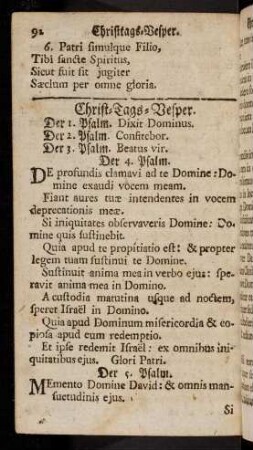 92 Christtags-Vesper.
6. Patri simulque Filio,
Tibi sancte Spiritus,
Sicut fuit sit jugiter
Sæclum per omne gloria.
Christ-Tags-Vesper.
Der 1. Psalm. Dixit Dominus.
Der 2. Psalm. Confitebor.
Der 3. Psalm. Beatus vir.
Der 4. Psalm.
DE profundis clamavi ad te Domine: Do-
mine exaudi vocem meam.
Fiant aures tuæ intendentes in vocem
deprecationis meæ.
Si iniquitates observaveris Domine: Do-
mine quis sustinebit.
Quia apud te propitiatio est: & propter
legem tuam sustinui te Domine.
Sustinuit anima mea in verbo ejus: spe-
ravit anima mea in Domino.
A custodia matutina usque ad noctem,
speret Israël in Domino.
Quia apud Dominum misericordia & co-
piosa apud eum redemptio.
Et ipse redemit Israël: ex omnibus ini-
quitatibus ejus. Glori Patri.
Der 5. Psalm.
MEmento Domine David: & omnis man-
suetudinis ejus.
Si